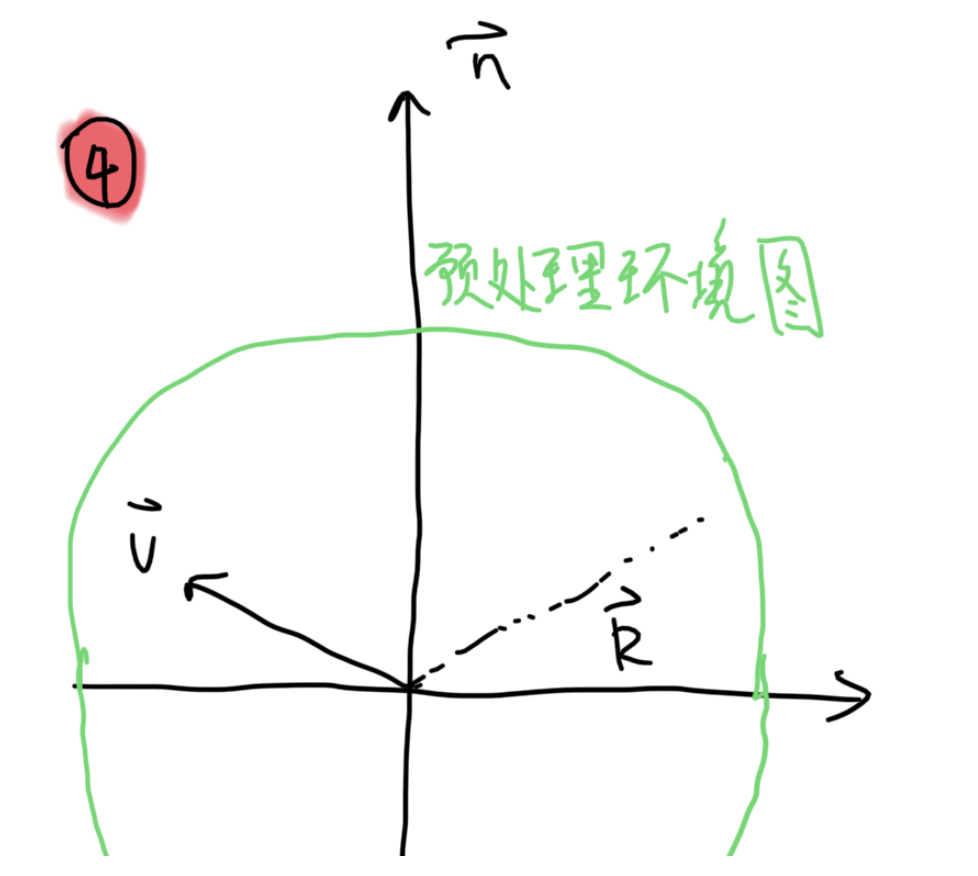 n
④
预处理环境图
v
R